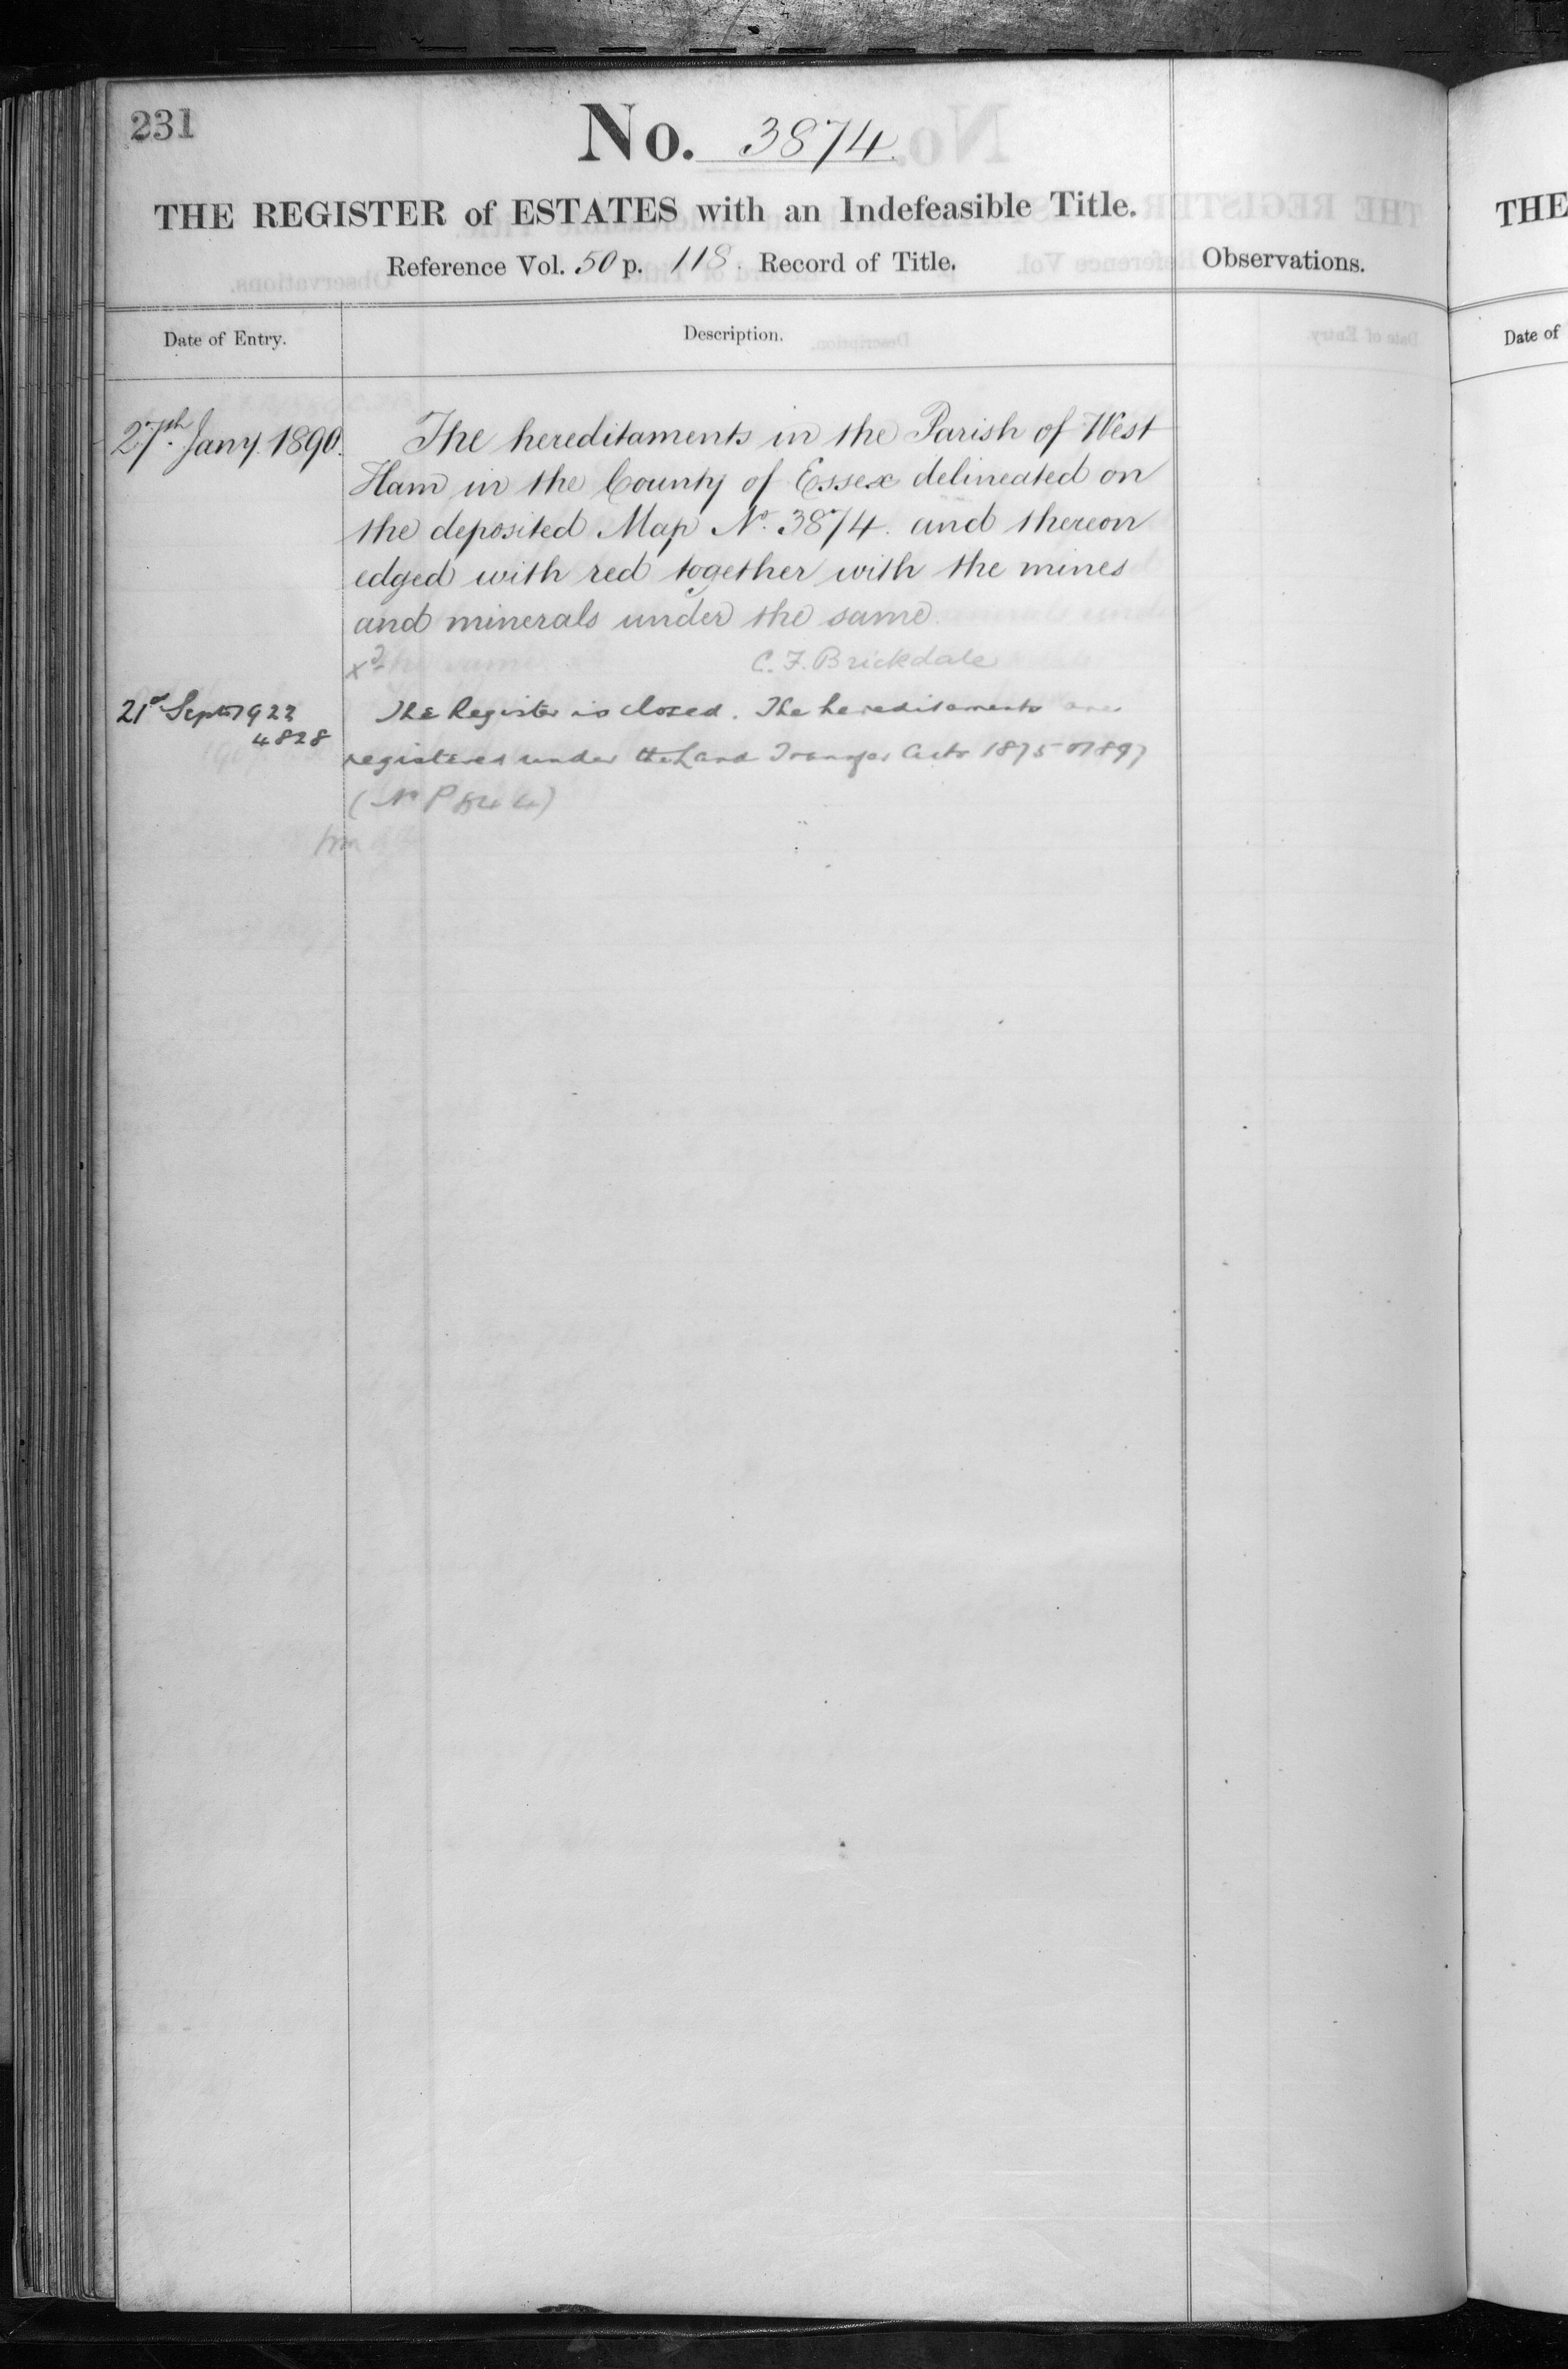 231
No. 3874.
THE REGISTER of ESTATES with an Indefeasible Title.
Reference Vol. 50 p. 118. Record of Title.
Observations.
Date of Entry.
Description.
27th Jany. 1890.
The hereditaments in the Parish of West
Ham in the County of Essex delineated on
the deposited Map No. 3874. and thereon
edged with red together with the mines
and minerals under the same.
C. F. Brickdale
21st Sept 1922
4828
The Register is closed. The hereditaments are
registered under the Land Transfer Acts 1875 & 1897
(No P
THE
Date of